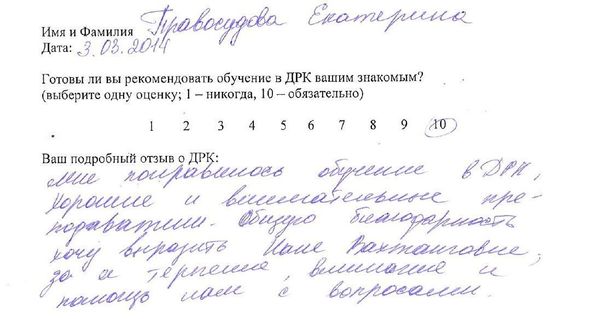 Имя и Фамилия Правосудова Екатерина
Дата: 3.03.2014
Готовы ли вы рекомендовать обучение в ДРК вашим знакомым?
(выберите одну оценку; 1 – никогда, 10 – обязательно)
1 2 3 4 5 6 7 8 9 10
Ваш подробный отзыв о ДРК:
Мне понравилось обучение в ДРК,
хорошие и внимательные пре-
подаватели. Общую благодарность
хочу выразить Нане Вахтанговне,
за терпение, внимание и
помощь нам с вопросами.